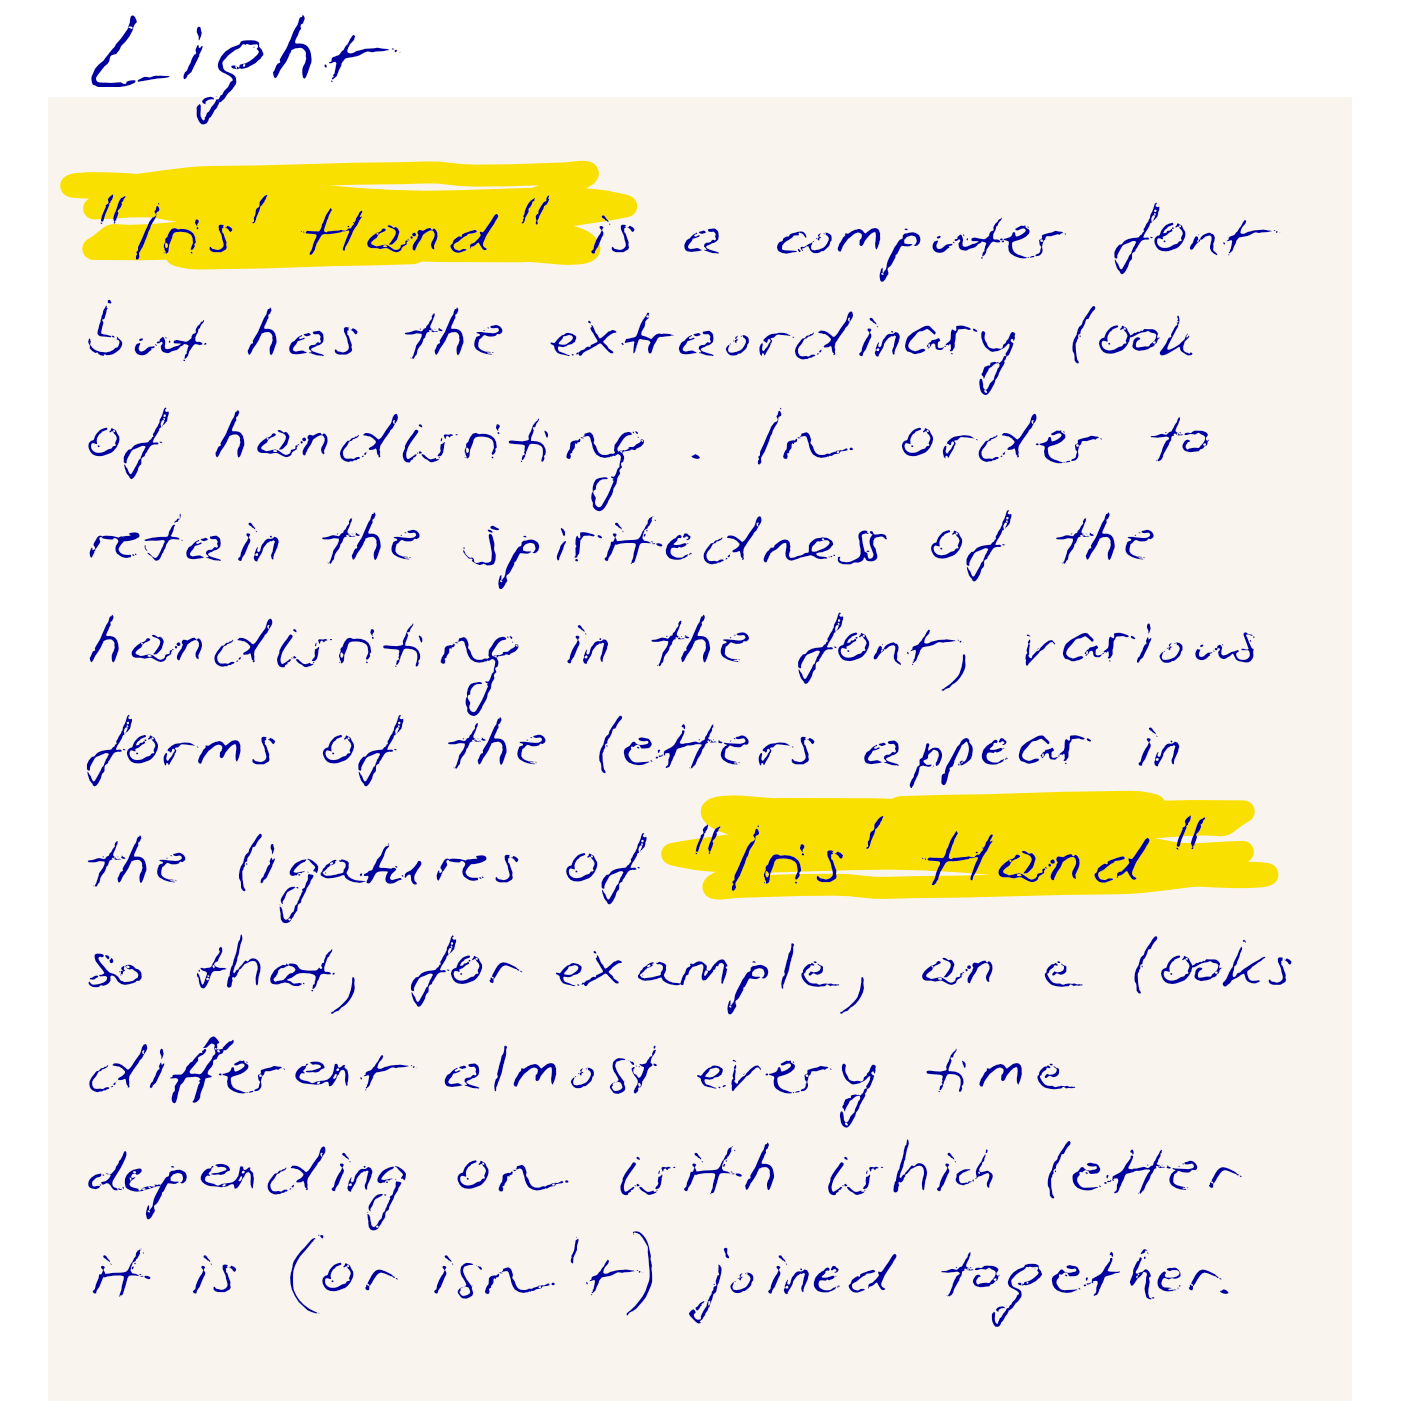 Light
"Iris' Hand" is a computer font
but has the extraordinary look
of handwriting. In order to
retain the spiritedness of the
handwriting in the font, various
forms of the letters appear in
the ligatures of "Iris' Hand"
so that, for example, an e looks
different almost every time
depending on with which letter
it is (or isn't) joined together.